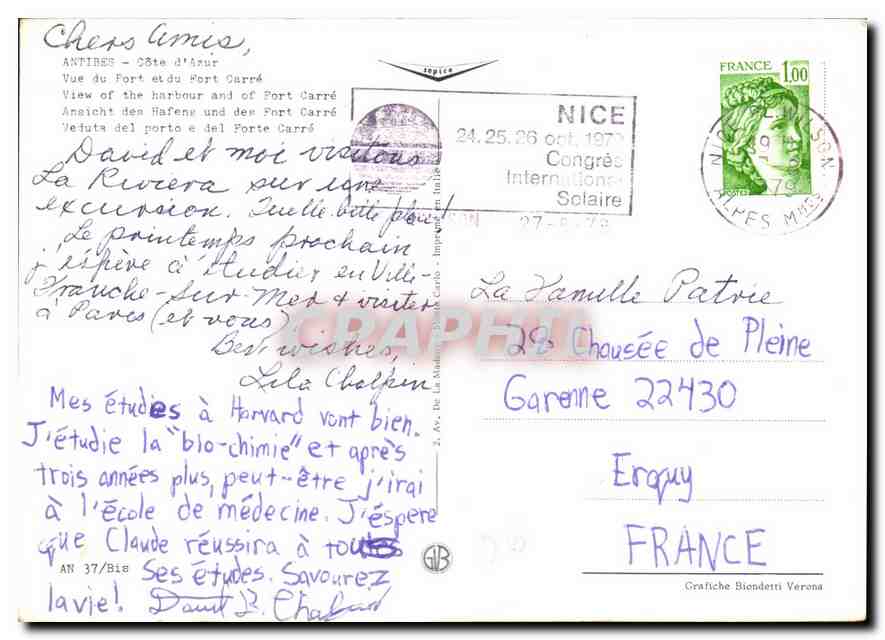 Chers Amis,
ANTIBES - Côte d'Azur
Vue du Port et du Fort Carré
View of the harbour and of Fort Carré
Ansicht des Hafens und des Fort Carré
Veduta del porto e del Forte Carré
David et moi visitons
La Riviera sur une
excursion. Quelle belle place!
Le printemps prochain
j'espère à étudier en Ville-
Franche-sur-Mer & visiter
à Paris (et vous)
Best wishes,
Lila Chalpin
Mes études à Harvard vont bien.
J'étudie la "bio-chimie" et après
trois années plus, peut-être j'irai
à l'école de médecine. J'éspere
que Claude réussira à toutes
Ses études. Savourez
la vie! David B. Chalpin
AN 37/Bis
sepica
2, Av. De La Madone - Monte Carlo - Imprimé en Italie
NICE
24.25.26 oct. 1979
Congrès
International
Solaire
27-8-79
FRANCE 1,00
POSTES
NICE PL. WILSON
79
ALPES Mmes
La Famille Patrie
28 Chausée de Pleine
Garenne 22430
Erquy
FRANCE
GVB
Grafiche Biondetti Verona
CPAPHIL